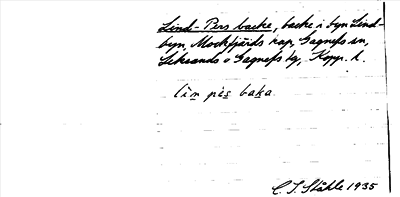 Lind-Pers backe, backe i byn Lind-
byn, Mockfjärds kap, Gagnefs sn,
Leksands o Gagnefs tg, Kopp. l.
lin pɛs baka.
C. I. Ståhle 1935